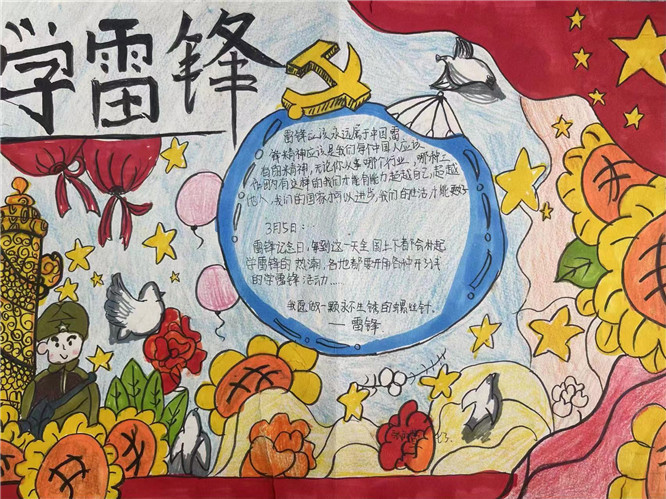 学雷锋
雷锋应该永远属于中国雷
锋精神应该是我们每个中国人应该
有的精神,无论你从事哪个行业,哪种工
作只有这样的我们才能有能力超越自己,超越
他人,我们的国家才可以进步,我们的生活才能更好
3月5日:
雷锋纪念日,每到这一天全国上下都会掀起
学雷锋的热潮,各地都要开展各种形式
的学雷锋活动……
我愿做一颗永不生锈的螺丝钉.
——雷锋